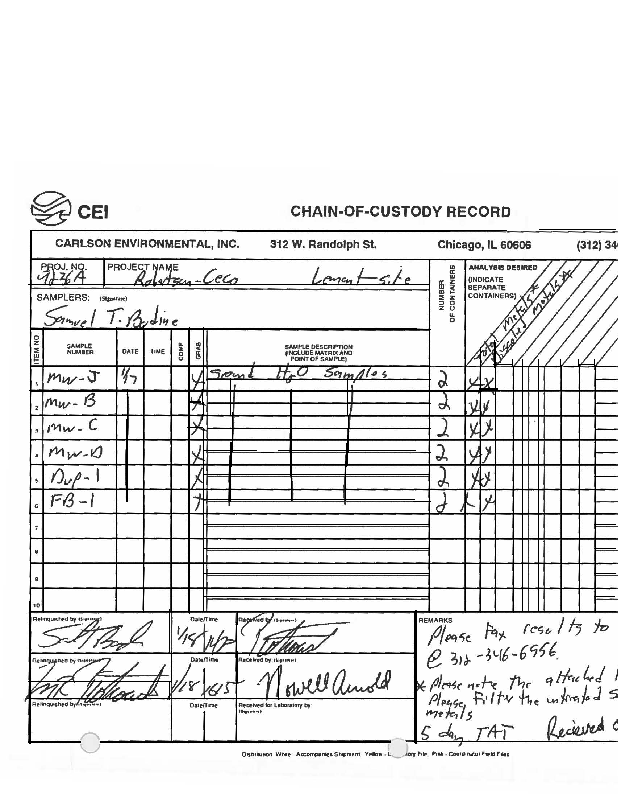 CEI CHAIN-OF-CUSTODY RECORD
CARLSON ENVIRONMENTAL, INC. 312 W. Randolph St. Chicago, IL 60606 (312) 34
PROJ. NO. PROJECT NAME
Robertson-Ceco Lemont site
SAMPLERS: (Signature)
Samuel T. Bodine
NUMBER OF CONTAINERS
ANALYSIS DESIRED
(INDICATE
SEPARATE
CONTAINERS)
Total Metals *
Dissolved Metals *
ITEM NO SAMPLE NUMBER DATE TIME COMP GRAB SAMPLE DESCRIPTION (INCLUDE MATRIX AND POINT OF SAMPLE)
1 MW-J 1/7 X Ground H2O Samples 2 X X
2 MW-B X 2 X X
3 MW-C X 2 X X
4 MW-D X 2 X X
5 Dup-1 X 2 X X
6 FB-1 X 2 X X
7
8
9
10
Relinquished by (Signature) Date/Time Received by (Signature)
1/18
Relinquished by (Signature) Date/Time Received by (Signature)
1/18 1615 Nowell Arnold
Relinquished by (Signature) Date/Time Received for Laboratory by: (Signature)
REMARKS
Please Fax results to
@ 312-346-6956.
* Please note the attached
Please Filter the
metals
5 day TAT Recieved
Distribution White Accompanies Shipment Yellow - Pink - Coordinator Field Files